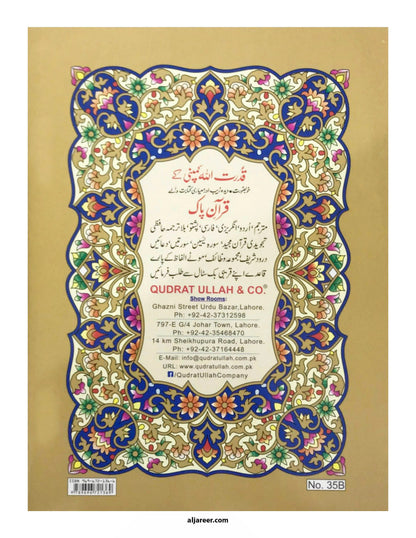 قدرت اللہ کمپنی کے
خوبصورت، دیدہ زیب اور معیاری طباعت والے
قرآن پاک
مترجم اُردو انگریزی فارسی پشتو بلا ترجمہ حافظی
تجویدی قرآن مجید سورہ یٰسین سورتیں دعائیں
درود شریف مجموعہ وظائف موٹے الفاظ کے پارے
قاعدے اپنے قریبی بک سٹال سے طلب فرمائیں
QUDRAT ULLAH & CO®
Show Rooms:
Ghazni Street Urdu Bazar, Lahore.
Ph: +92-42-37312598
797-E G/4 Johar Town, Lahore.
Ph: +92-42-35468470
14 km Sheikhupura Road, Lahore.
Ph: +92-42-37164448
E-Mail: info@qudratullah.com.pk
URL: www.qudratullah.com.pk
/QudratUllahCompany
No. 35B
aljareer.com